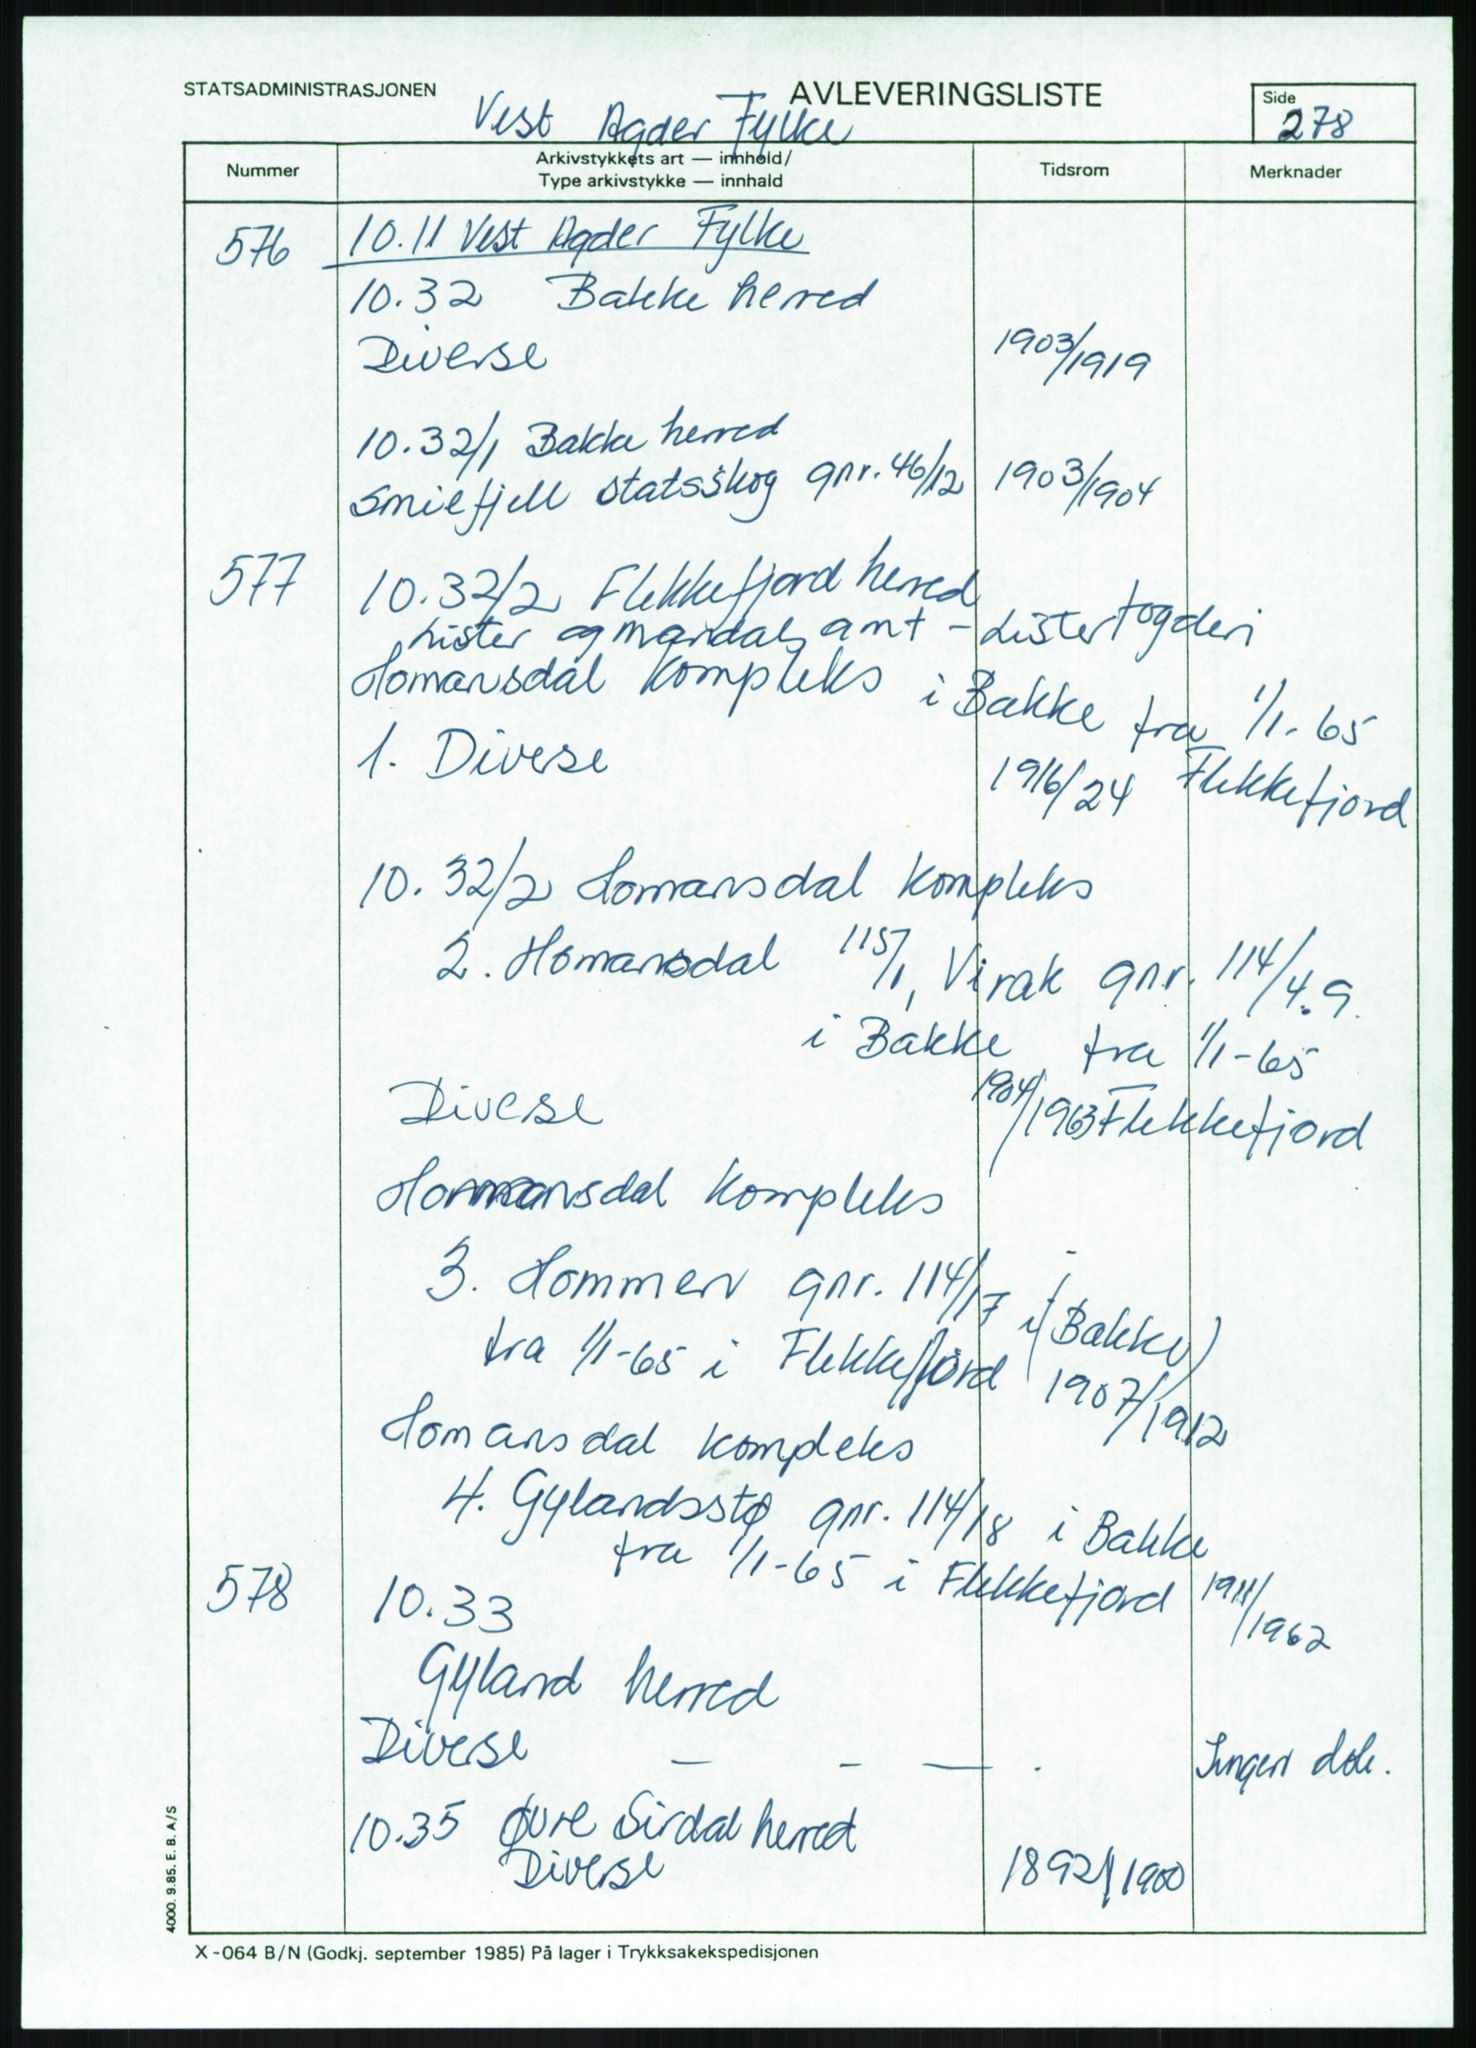 STATSADMINISTRASJONEN
AVLEVERINGSLISTE
Side
278
Vest Agder Fylke
Nummer
Arkivstykkets art — innhold/
Type arkivstykke — innhald
Tidsrom
Merknader
576 10.11 Vest Agder Fylke
10.32 Bakke herred
Diverse 1903/1919
10.32/1 Bakke herred
Smiefjell statsskog gnr. 46/12 1903/1904
577 10.32/2 Flekkefjord herred
Lister og Mandals amt - Lister fogderi
Homansdal kompleks i Bakke fra 1/1-65
1. Diverse 1916/24 Flekkefjord
10.32/2 Homansdal kompleks
2. Homansdal 115/1, Virak gnr. 114/4.9.
i Bakke fra 1/1-65
Diverse 1904/1963 Flekkefjord
Homansdal kompleks
3. Hommen gnr. 114/17 i (Bakke)
fra 1/1-65 i Flekkefjord 1907/1912
Homansdal kompleks
4. Gylandsstø gnr. 114/18 i Bakke
fra 1/1-65 i Flekkefjord 1911/1962
578 10.33
Gyland herred
Diverse — - — . Ingen dok.
10.35 Øvre Sirdal herred
Diverse 1892/1900
4000. 9.85. E. B. A/S
X-064 B/N (Godkj. september 1985) På lager i Trykksakekspedisjonen